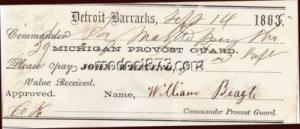 Detroit Barracks, Sept 14 1865
Commander
39 MICHIGAN PROVOST GUARD.
Please pay JOHN WHITING,
Value Received.
Approved. Name, William Beagle
Commander Provost Guard.
modoc1873.com